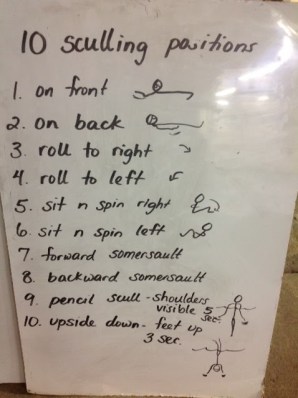 10 sculling positions
1. on front
2. on back
3. roll to right
4. roll to left
5. sit n spin right
6. sit n spin left
7. forward somersault
8. backward somersault
9. pencil scull - shoulders
visible 5
sec.
10. upside down - feet up
3 sec.